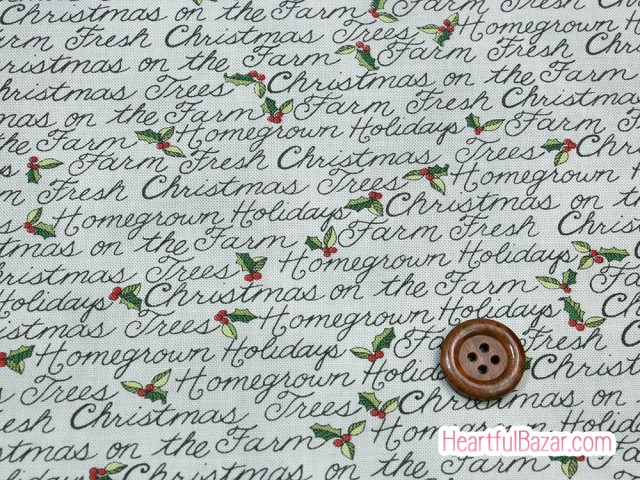 Farm Christmas on the Farm
Farm Fresh Christmas Trees Homegrown
Christmas on the Farm Farm Fresh
Christmas Trees Christmas on the Farm
Christmas on the Farm Farm Fresh Christmas
on the Farm Homegrown Holidays Farm Fresh
Farm Fresh Christmas Trees Christmas
Farm Fresh Christmas Trees Homegrown
Homegrown Holidays Christmas on the
Christmas on the Farm Farm Fresh Christmas
Christmas Trees Homegrown Holidays
Holidays Christmas on the Farm
Christmas Trees Homegrown Holidays
Homegrown Holidays Farm Fresh
Trees Homegrown Holidays Christmas
Christmas Trees Christmas
Christmas on the Farm Homegrown
Christmas on the Farm
HeartfulBazar.com